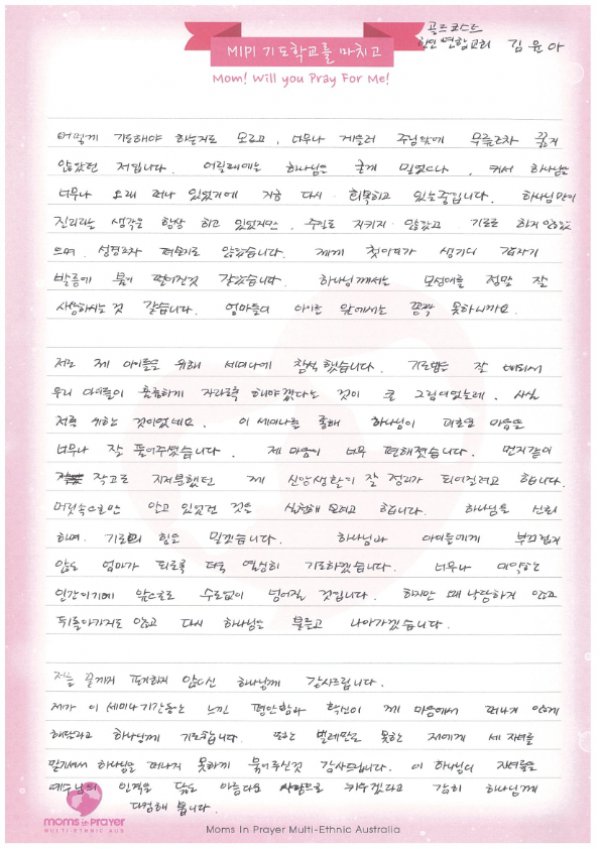 골드코스트
한인 연합교회 김윤아
MIPI 기도학교를 마치고
Mom! Will you Pray For Me!
어떻게 기도해야 하는지도 모르고, 너무나 게을러 주님앞에 무릎조차 꿇지
않았던 저입니다. 어릴때에는 하나님을 굳게 믿었으나, 커서 하나님을
너무나 오래 떠나 있었기에 지금 다시 회복하고 있는중입니다. 하나님만이
진리라는 생각을 항상 하고 있었지만, 주일도 지키지 않았고 기도도 하지 않았
으며, 성경조차 펴보지도 않았습니다. 제게 첫아이가 생기니 갑자기
발등에 불이 떨어진것 같았습니다. 하나님께서는 모성애를 정말 잘
사용하시는 것 같습니다. 엄마들이 아이들 앞에서는 꼼짝 못하니까요.
저는 제 아이들을 위해 세미나에 참석했습니다. 기도법을 잘 배워서
우리 아이들이 훌륭하게 자라도록 해야겠다는 것이 큰 그림이었는데, 사실
저를 위한 것이었네요. 이 세미나를 통해 하나님이 괴로운 마음을
너무나 잘 풀어주셨습니다. 제 마음이 너무 편해졌습니다. 먼지같이
작고도 지저분했던 제 신앙생활이 잘 정리가 되어질려고 합니다.
머릿속으로만 알고 있었던 것을 실천해 보려고 합니다. 하나님을 신뢰
하며, 기도의 힘을 믿겠습니다. 하나님과 아이들에게 부끄럽지
않는 엄마가 되도록 더욱 열심히 기도하겠습니다. 너무나 미약한
인간이기에 앞으로도 수도없이 넘어질 것입니다. 하지만 때 낙망하지 않고
뒤돌아가지도 않고 다시 하나님을 붙들고 나아가겠습니다.
저를 끝까지 포기하지 않으신 하나님께 감사드립니다.
제가 이 세미나 기간동안 느낀 평안함과 확신이 제 마음에서 떠나지 않게
해달라고 하나님께 기도합니다. 또한 벌레만도 못한 저에게 세 자녀를
맡기셔서 하나님을 떠나지 못하게 묶어주신것 감사드립니다. 이 하나님의 자녀들을
예수님의 인격을 닮은 아름다운 사람으로 키우겠다고 감히 하나님께
다짐해 봅니다.
moms in PRAYER
MULTI-ETHNIC AUS
Moms In Prayer Multi-Ethnic Australia